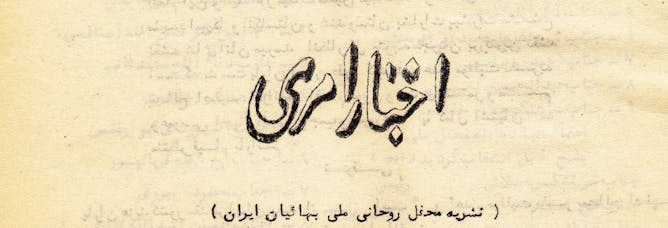 اخبار امری
( نشریه محفل روحانی ملی بهائیان ایران )